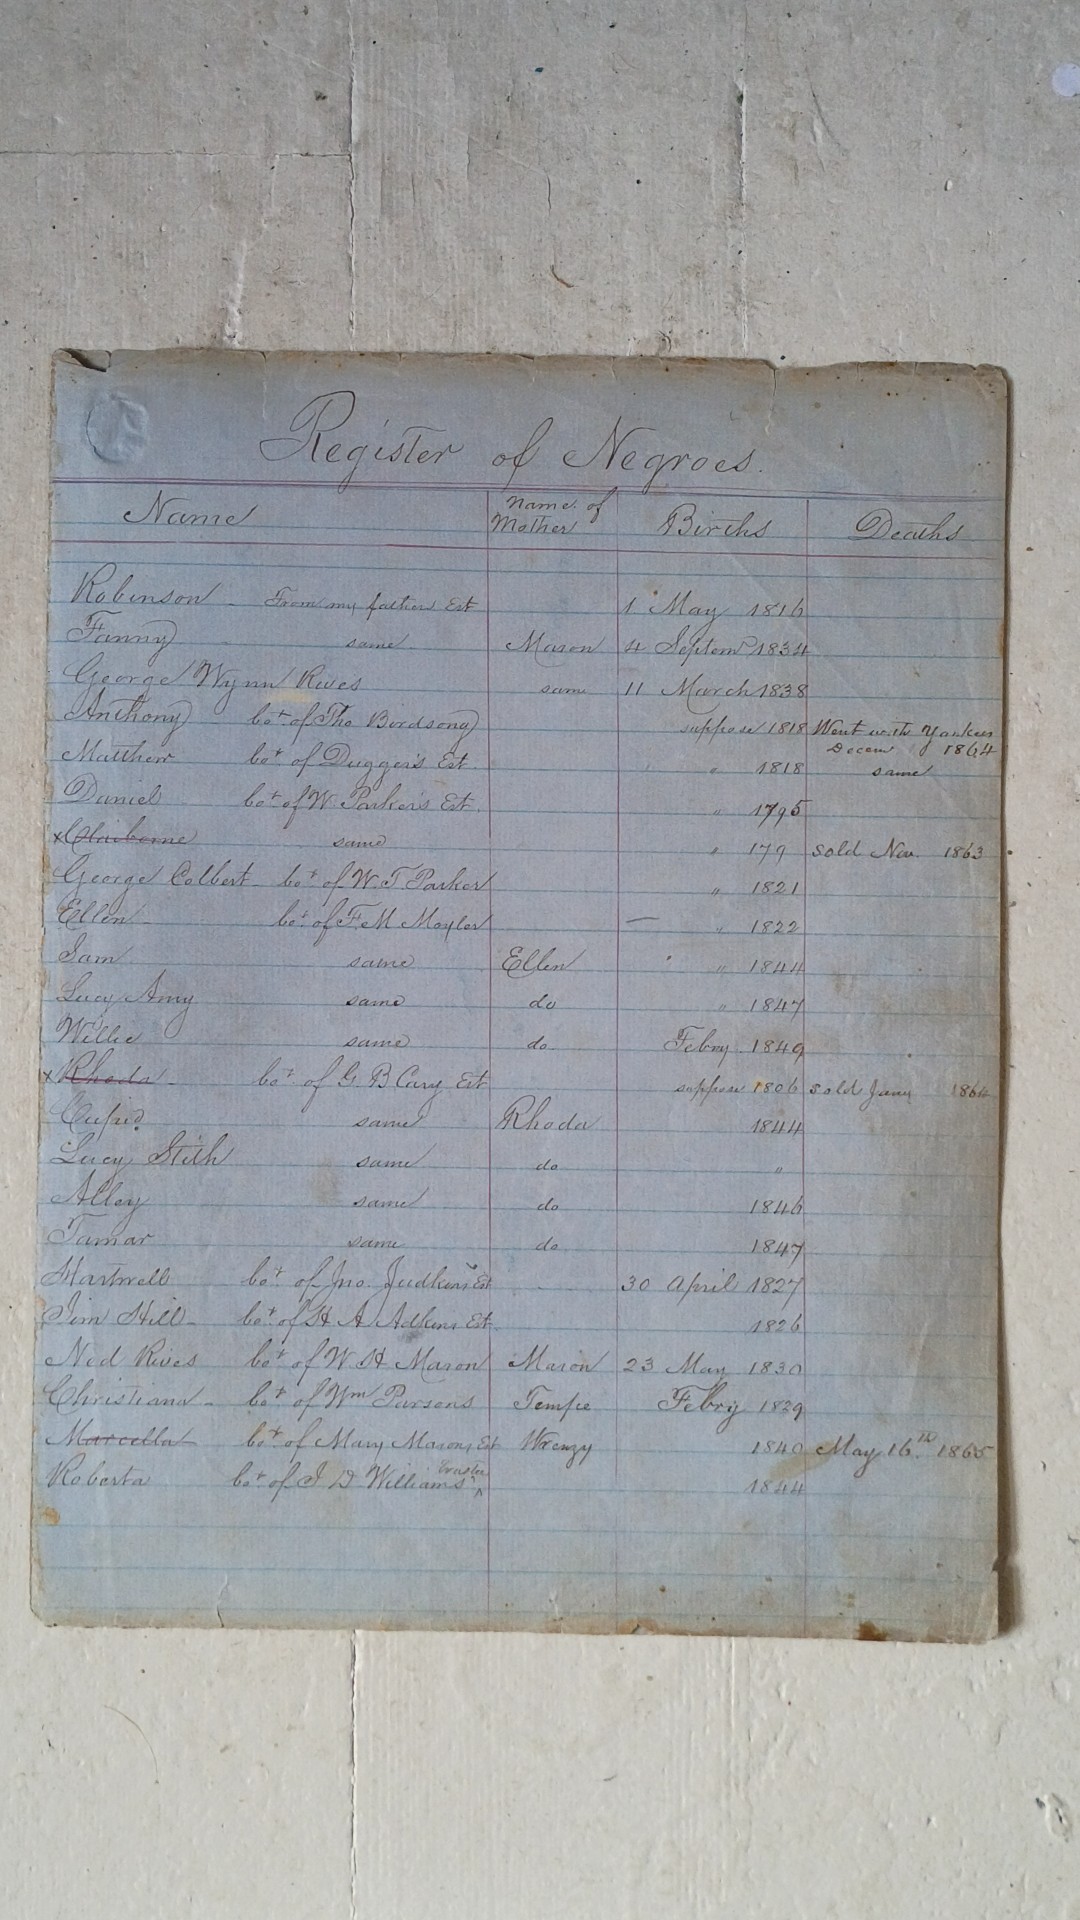 Register of Negroes.
Name Name of Mother Births Deaths
Robinson - From my fathers Est 1 May 1816
Fanny same Mason 4 Septemr 1834
George Wynn Rives same 11 March 1838
Anthony bot of Tho Birdsong suppose 1818 Went with Yankees
Decem 1864
Matthew bot of Dugger's Est " 1818 same
Daniel bot of W Parker's Est. " 1795
x Claiborne same " 179 sold Nov. 1863
George Colbert - bot of W T Parker " 1821
Ellen bot of F M Moyler — " 1822
Sam same Ellen " 1844
Lucy Amy same do " 1847
Willie same do Febry 1849
x Rhoda - bot of G B Cary Est suppose 1806 sold Jany 1864
Cupid same Rhoda 1844
Lucy Stith same do "
Alley same do 1846
Tamar same do 1847
Hartwell bot of Jno. Judkins Est 30 April 1827
Jim Hill - bot of H A Adkins Est. 1826
Ned Rives bot of W H Mason Mason 23 May 1830
Christiana - bot of Wm Parsons Tempe Febry 1839
Marcella bot of Mary Masons Est Wrenzy 1840 May 16th 1865
Roberta bot of J D Williams Trustee 1844